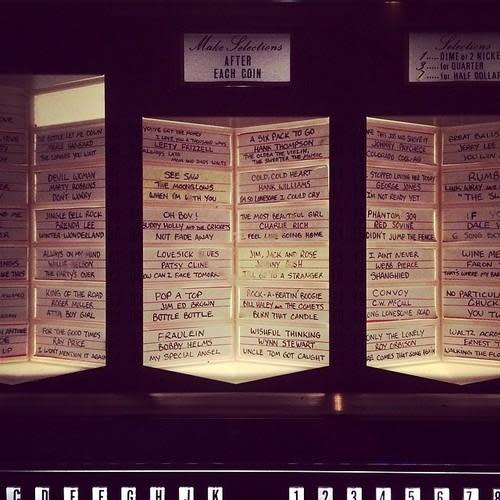 Make Selections
AFTER
EACH COIN
Selections
1 ..... DIME or 2 NICKE
3 ..... for QUARTER
7 ..... for HALF DOLLAR
BOTTLE LET ME DOWN
MERLE HAGGARD
THE LONGER YOU WAIT
DEVIL WOMAN
MARTY ROBBINS
DON'T WORRY
JINGLE BELL ROCK
BRENDA LEE
WINTER WONDERLAND
ALWAYS ON MY MIND
WILLIE NELSON
THE PARTY'S OVER
KING OF THE ROAD
ROGER MILLER
ATTA BOY GIRL
FOR THE GOOD TIMES
RAY PRICE
WON'T MENTION IT AGAIN
YOU'VE GOT THE MONEY
I LOVE YOU A THOUSAND WAYS
LEFTY FRIZZELL
ALWAYS LATE
MOM AND DAD'S WALTZ
SEE SAW
THE MOONGLOWS
WHEN I'M WITH YOU
OH BOY!
BUDDY HOLLY AND THE CRICKETS
NOT FADE AWAY
LOVESICK BLUES
PATSY CLINE
HOW CAN I FACE TOMORR
POP A TOP
JIM ED BROWN
BOTTLE BOTTLE
FRAULEIN
BOBBY HELMS
MY SPECIAL ANGEL
A SIX PACK TO GO
HANK THOMPSON
THE OLDER THE VIOLIN,
THE SWEETER THE MUSIC
COLD, COLD HEART
HANK WILLIAMS
I'M SO LONESOME I COULD CRY
THE MOST BEAUTIFUL GIRL
CHARLIE RICH
FEEL LIKE GOING HOME
JIM, JACK AND ROSE
JOHNNY BUSH
TO A STRANGER
ROCK-A-BEATIN' BOOGIE
BILL HALEY AND THE COMETS
BURN THAT CANDLE
WISHFUL THINKING
WYNN STEWART
UNCLE TOM GOT CAUGHT
THIS JOB AND SHOVE IT
JOHNNY PAYCHECK
COLORADO COOL-AID
STOPPED LOVING HER TODAY
GEORGE JONES
I'M NOT READY YET
PHANTOM 309
RED SOVINE
DIDN'T JUMP THE FENCE
I AIN'T NEVER
WEBB PIERCE
SHANGHIED
CONVOY
C.W. McCALL
LONG LONESOME ROAD
ONLY THE LONELY
ROY ORBISON
COMES THAT SONG AGAIN
GREAT BALLS
JERRY LEE
YOU WIN
RUMB
LINK WRAY AND
"THE S
IF
DALE
G SONG
WINE ME
FARON
THAT'S WHERE MY
NO PARTICULAR
CHUCK
YOU T
WALTZ ACROSS
ERNEST T
WALKING THE FLO
C D E F G H J K 1 2 3 4 5 6 7 8